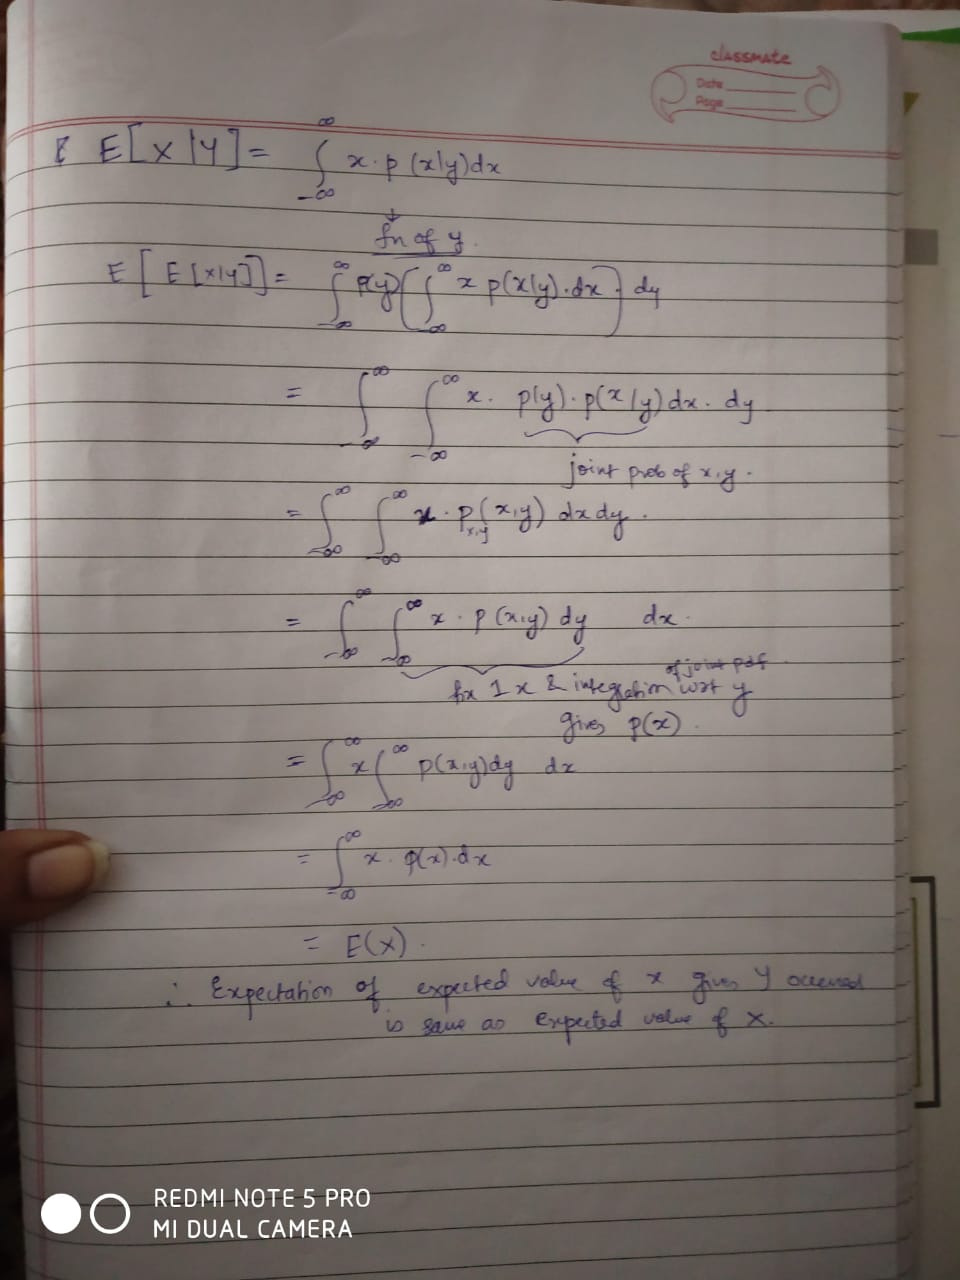 classmate
Date
Page
E[X|Y] = ∫_{-∞}^{∞} x·p(x|y)dx
↓
fn of y.
E[E[X|Y]] = ∫_{-∞}^{∞} p(y) [∫_{-∞}^{∞} x p(x|y)·dx] dy
= ∫_{-∞}^{∞} ∫_{-∞}^{∞} x· p(y)·p(x|y)dx· dy
joint prob of x,y.
= ∫_{-∞}^{∞} ∫_{-∞}^{∞} x·p_{x,y}(x,y) dx dy.
= ∫_{-∞}^{∞} ∫_{-∞}^{∞} x·p(x,y) dy dx.
of joint pdf
fix 1 x & integration wrt y
gives p(x).
= ∫_{-∞}^{∞} x ∫_{-∞}^{∞} p(x,y)dy dx
= ∫_{-∞}^{∞} x·p(x)·dx
= E(X).
∴ Expectation of expected value of x given y occurred
is same as expected value of X.
REDMI NOTE 5 PRO
MI DUAL CAMERA